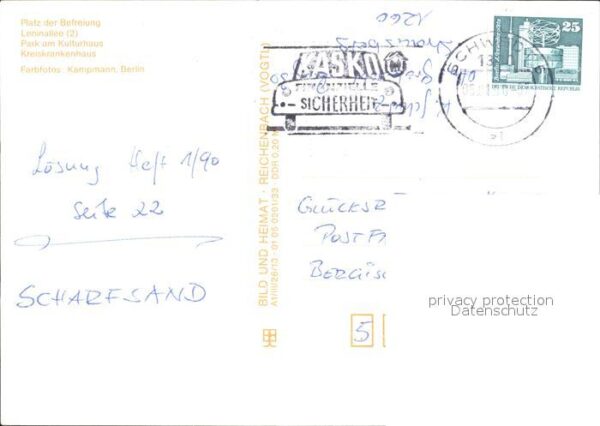 Platz der Befreiung
Leninallee (2)
Park am Kulturhaus
Kreiskrankenhaus
Farbfotos: Kampmann, Berlin
Lösung Heft 1/90
Seite 22
SCHARFSAND
BILD UND HEIMAT · REICHENBACH (VOGTL
A1/III/26/13 · 01 05 0201/33 DDR 0,20 M
KASKO
FINANZIELLE
SICHERHEIT
1260
Strausberg
25
DEUTSCHE DEMOKRATISCHE REPUBLIK
GLÜCKSR
POSTF
BERGIS
5
privacy protection
Datenschutz